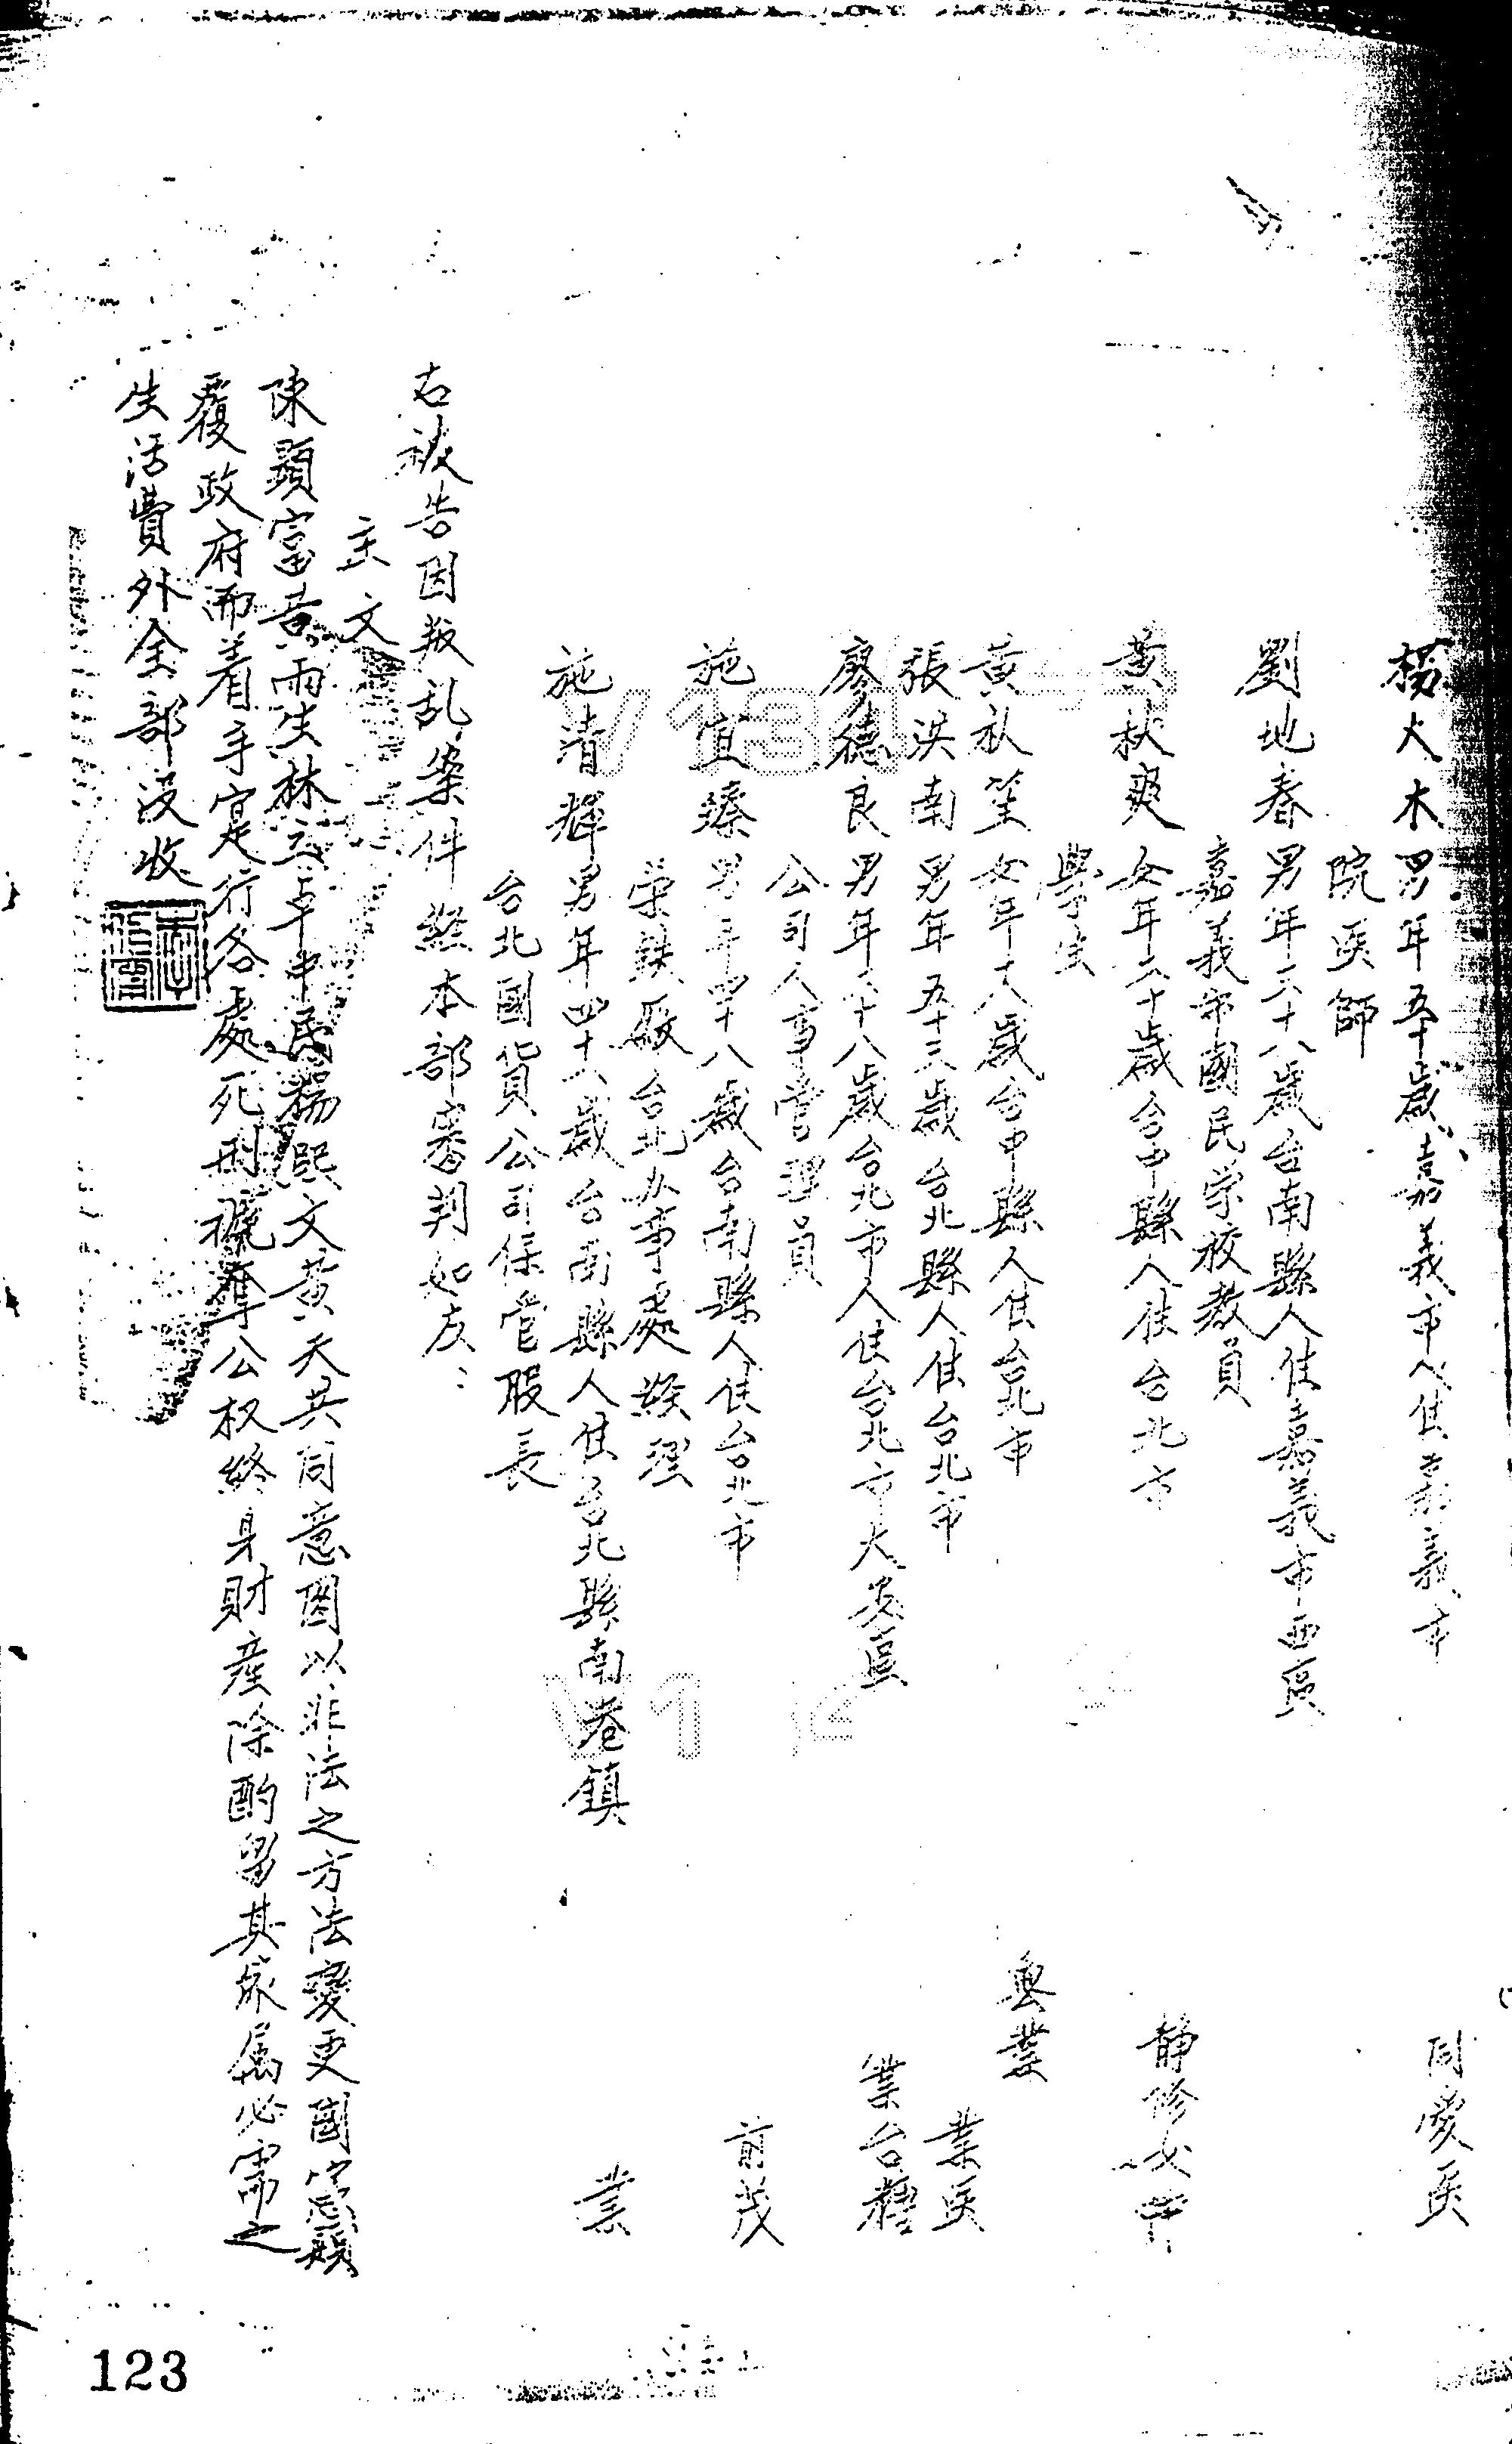 楊火木男年五十歲嘉義市人住嘉義市 同愛医
院医師
劉地春男年二十八歲台南縣人住嘉義市西區
嘉義市國民学校教員
黃秋爽女年二十歲台中縣人住台北市 静修女中
學生
黃秋笙女年十八歲台中縣人住台北市 無業
張淇南男年五十三歲台北縣人住台北市 業医
廖德良男年二十八歲台北市人住台北市大安區 業台糖
公司人事管理員
施宜 男年四十八歲台南縣人住台北市 前茂
栄鉄厰台北办事處經理
施清輝男年四十八歲台南縣人住台北縣南港鎮 業
台北國貨公司保管股長
右被告因叛乱案件經本部審判如左：
主文
陳顯富黃雨生林立卓中民楊熙文黃天共同意圖以非法之方法變更國憲顛
覆政府而着手实行各處死刑褫奪公权終身財產除酌留其家属必需之
生活費外全部没收
123